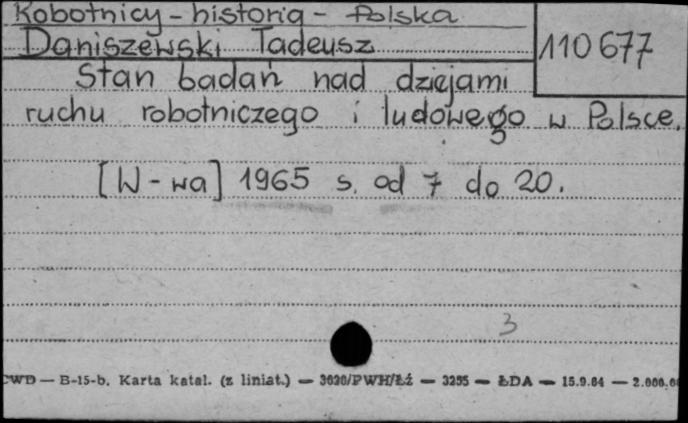 Robotnicy - historia - Polska
Daniszewski Tadeusz
110677
Stan badań nad dziejami
ruchu robotniczego i ludowego w Polsce.
[W-wa] 1965 s. od 7 do 20.
3
CWD — B-15-b. Karta katal. (z liniat.) — 3020/PWH/Łź — 3255 — ŁDA — 15.9.64 — 2.000.00